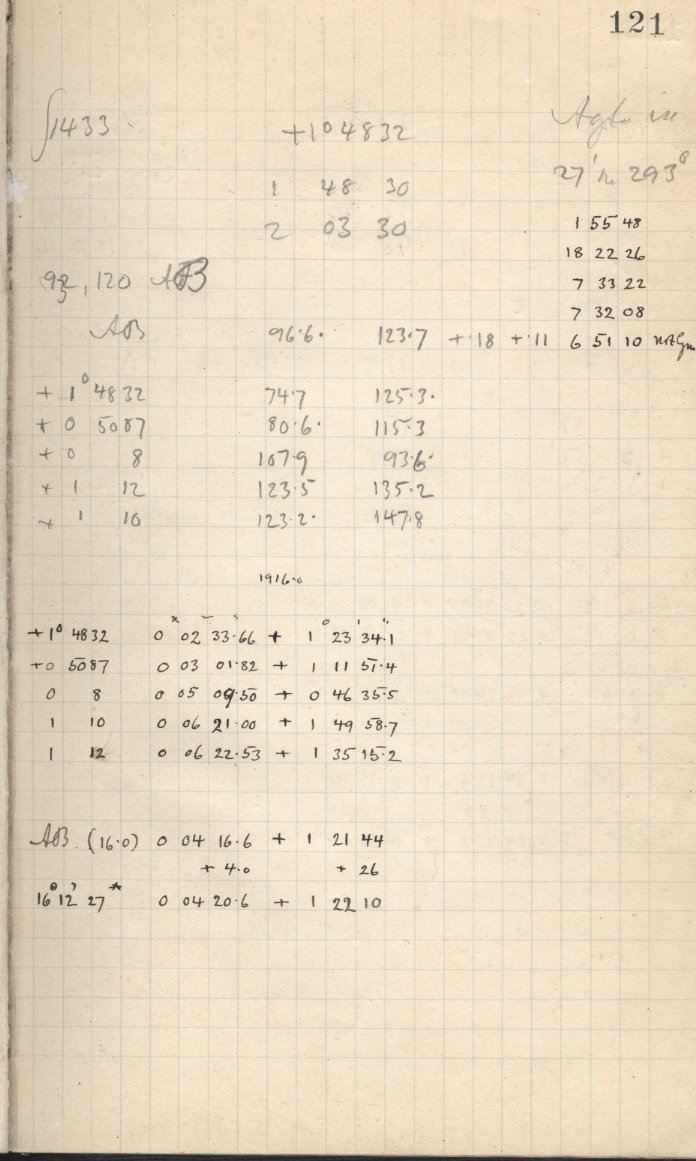 121
∫1433 +1° 4832
1 48 30
2 03 30
27' in 293°
1 55 48
18 22 26
7 33 22
7 32 08
6 51 10 not
120 AOB
AOB 96.6. 123.7 + .18 + .11
+ 1° 4832 74.7 125.3.
+ 0 5087 80.6. 115.3
+ 0 8 107.9 93.6.
+ 1 12 123.5 135.2
+ 1 10 123.2. 147.8
1916.0
+1° 4832 0 02 33.66 + 1 23 34.1
+0 5087 0 03 01.82 + 1 11 51.4
0 8 0 05 09.50 + 0 46 35.5
1 10 0 06 21.00 + 1 49 58.7
1 12 0 06 22.53 + 1 35 15.2
AOB. (16.0) 0 04 16.6 + 1 21 44
+ 4.0 + 26
16° 12' 27* 0 04 20.6 + 1 22 10